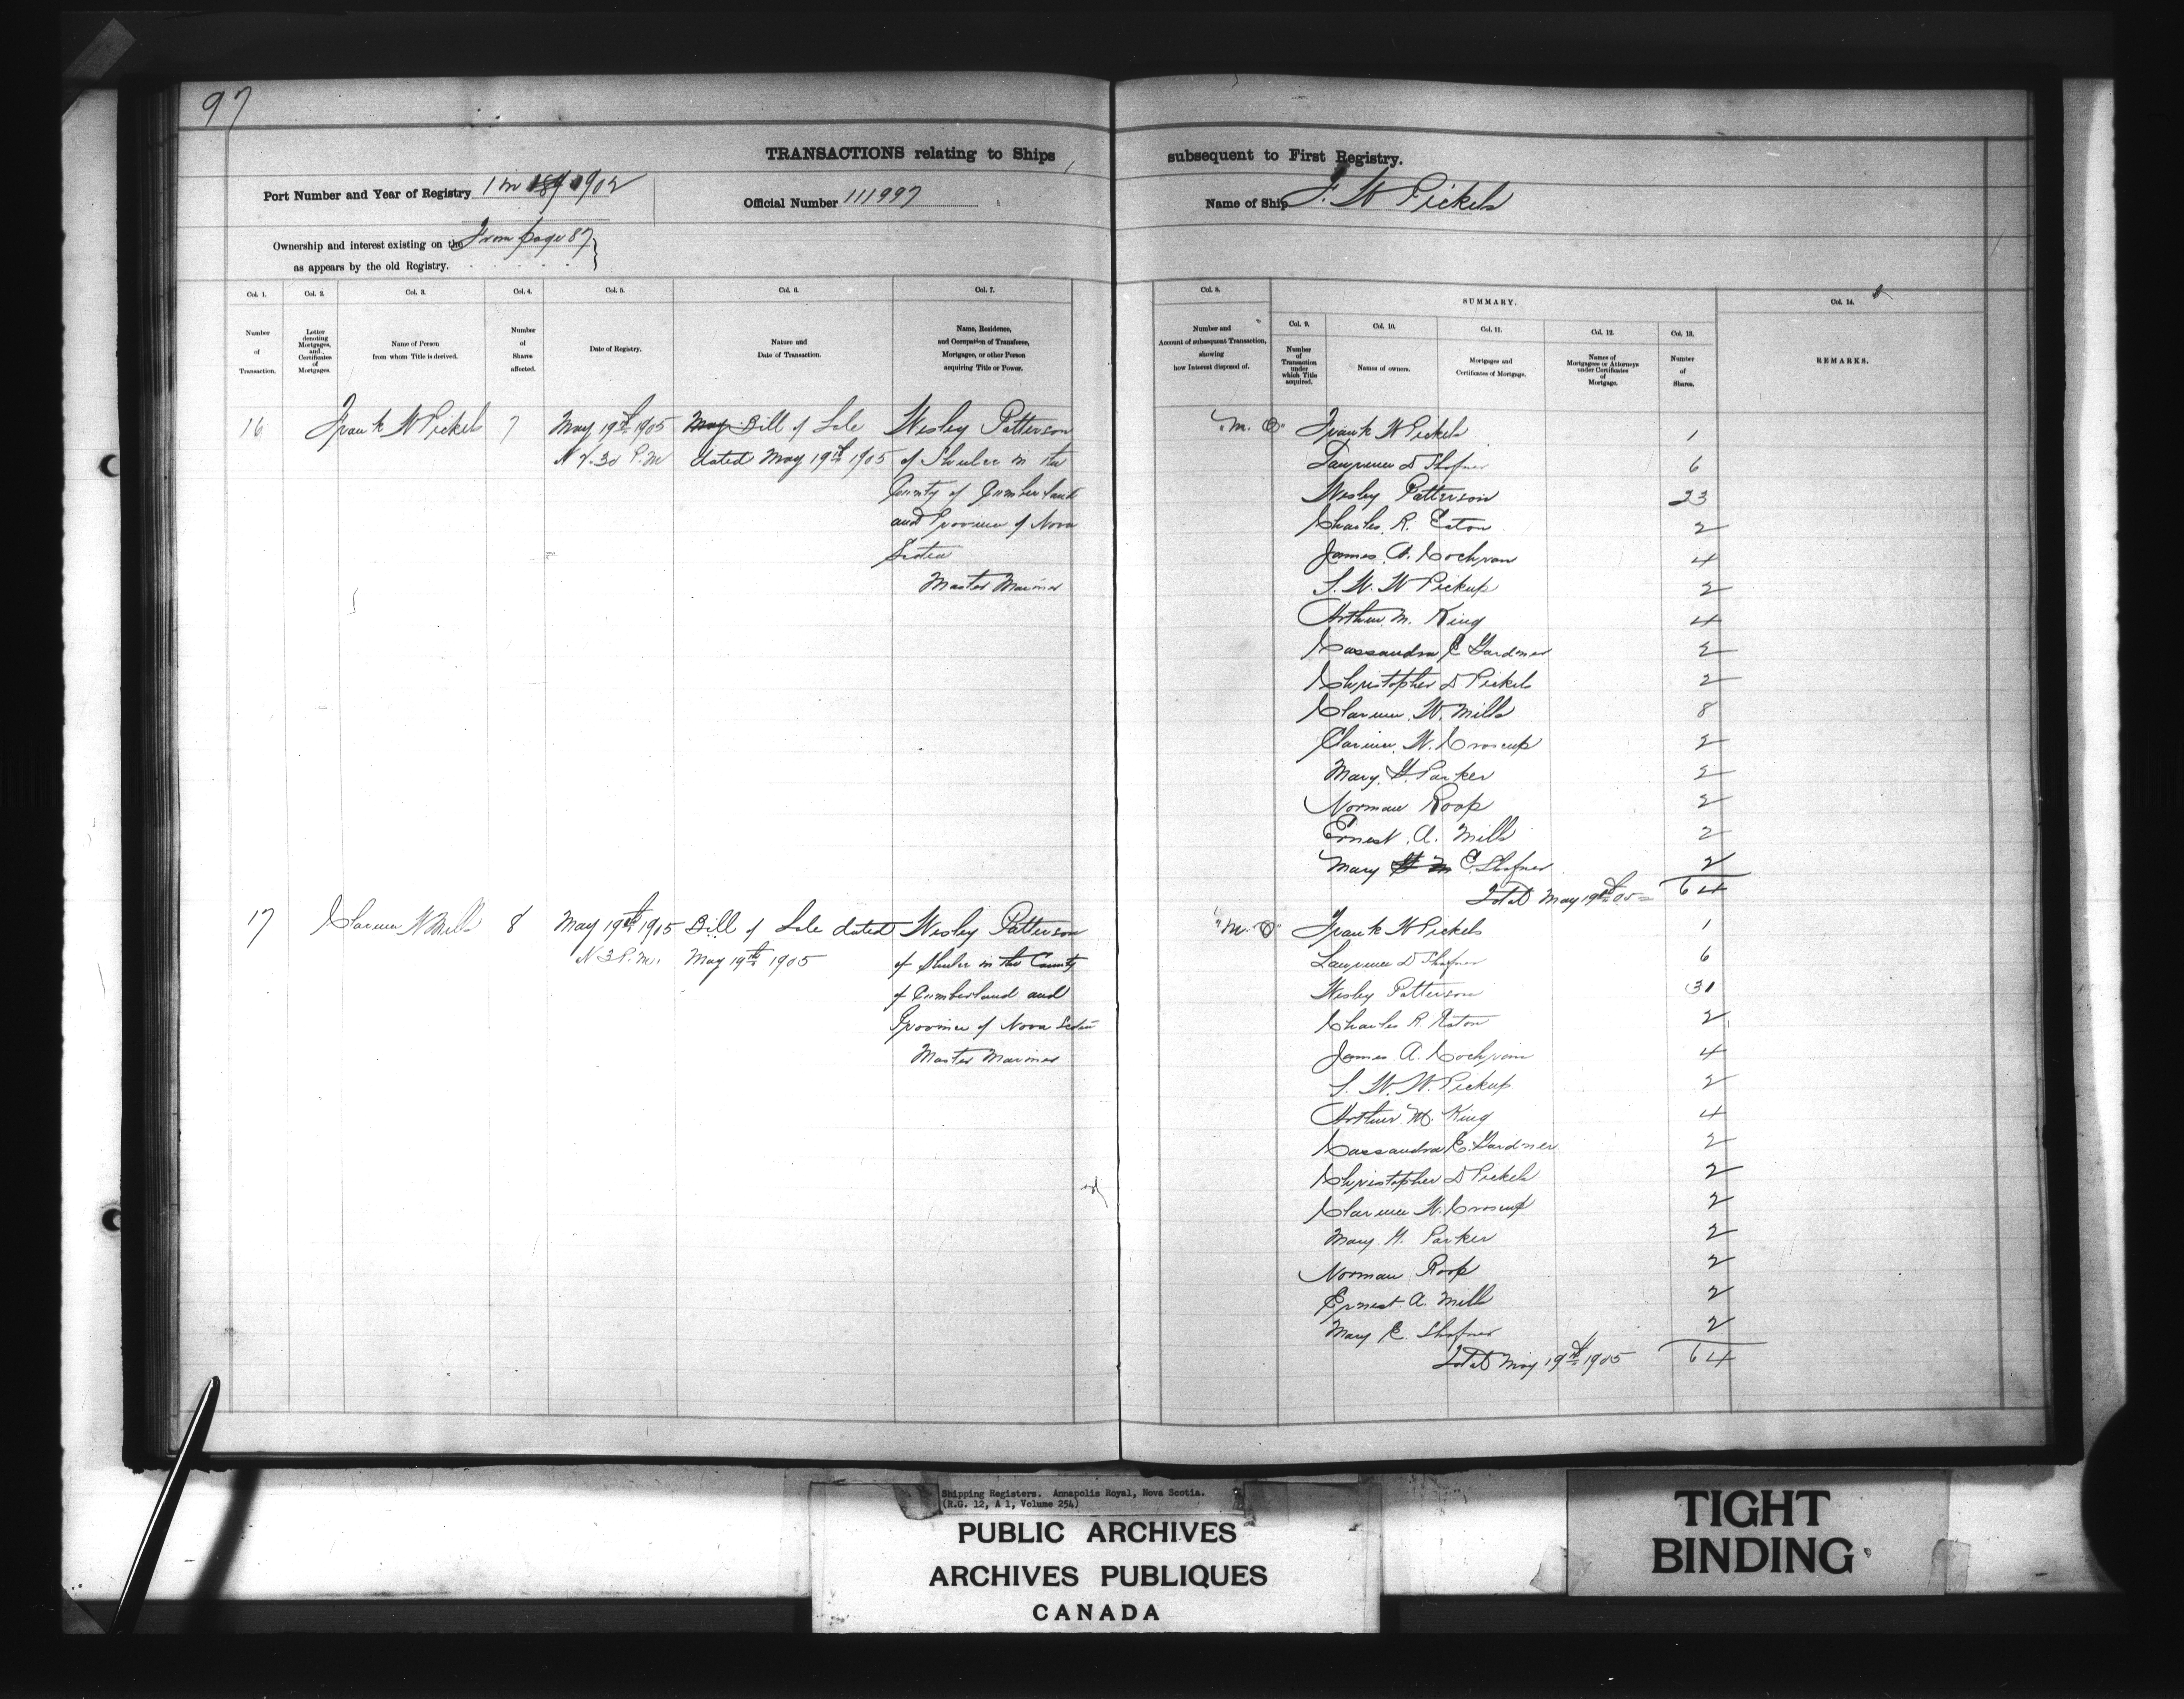 97
TRANSACTIONS relating to Ships subsequent to First Registry.
Port Number and Year of Registry 1 in 1902
Official Number 111997
Name of Ship F. W Pickels
Ownership and interest existing on the From page 87
as appears by the old Registry.
Col. 1. Col. 2. Col. 3. Col. 4. Col. 5. Col. 6. Col. 7. Col. 8. SUMMARY. Col. 14.
Col. 9. Col. 10. Col. 11. Col. 12. Col. 13.
Number of Transaction.
Letter denoting Mortgages, and Certificates of Mortgages.
Name of Person from whom Title is derived.
Number of Shares affected.
Date of Registry.
Nature and Date of Transaction.
Name, Residence, and Occupation of Transferee, Mortgagee, or other Person acquiring Title or Power.
Number and Account of subsequent Transaction, showing how Interest disposed of.
Number of Transaction under which Title acquired.
Names of owners.
Mortgages and Certificates of Mortgage.
Names of Mortgagees or Attorneys under Certificates of Mortgage.
Number of Shares.
REMARKS.
16 Frank W Pickels 7 May 19th 1905 May Bill of Sale Wesley Patterson
30 P.M dated May 19th 1905 of Shulee in the
County of Cumberland
and Province of Nova
Scotia
Master Mariner
"M. O" Frank W Pickels 1
Lawrence D Shafner 6
Wesley Patterson 23
Charles. R. Eaton 2
James. A. Cochran 4
S. W. W Pickup 2
Arthur. M. King 4
Cassandra E Gardner 2
Christopher D. Pickels 2
Clarence. W. Mills 8
Clarence. W. Croscup 2
Mary. H. Parker 2
Norman Roop 2
Ernest. A. Mills 2
Mary E. Shafner 2
Total May 19th 05 64
17 Clarence W Mills 8 May 19th 1905 Bill of Sale dated Wesley Patterson
3 P.M. May 19th 1905 of Shulee in the County
of Cumberland and
Province of Nova Scotia
Master Mariner
"M. O" Frank W Pickels 1
Lawrence D Shafner 6
Wesley Patterson 31
Charles R Eaton 2
James A. Cochran 4
S. W. W. Pickup 2
Arthur. M. King 4
Cassandra E. Gardner 2
Christopher D Pickels 2
Clarence W. Croscup 2
Mary. H. Parker 2
Norman Roop 2
Ernest. A. Mills 2
Mary E. Shafner 2
Total May 19th 1905 64
Shipping Registers. Annapolis Royal, Nova Scotia.
(R.G. 12, A 1, Volume 254)
PUBLIC ARCHIVES
ARCHIVES PUBLIQUES
CANADA
TIGHT
BINDING